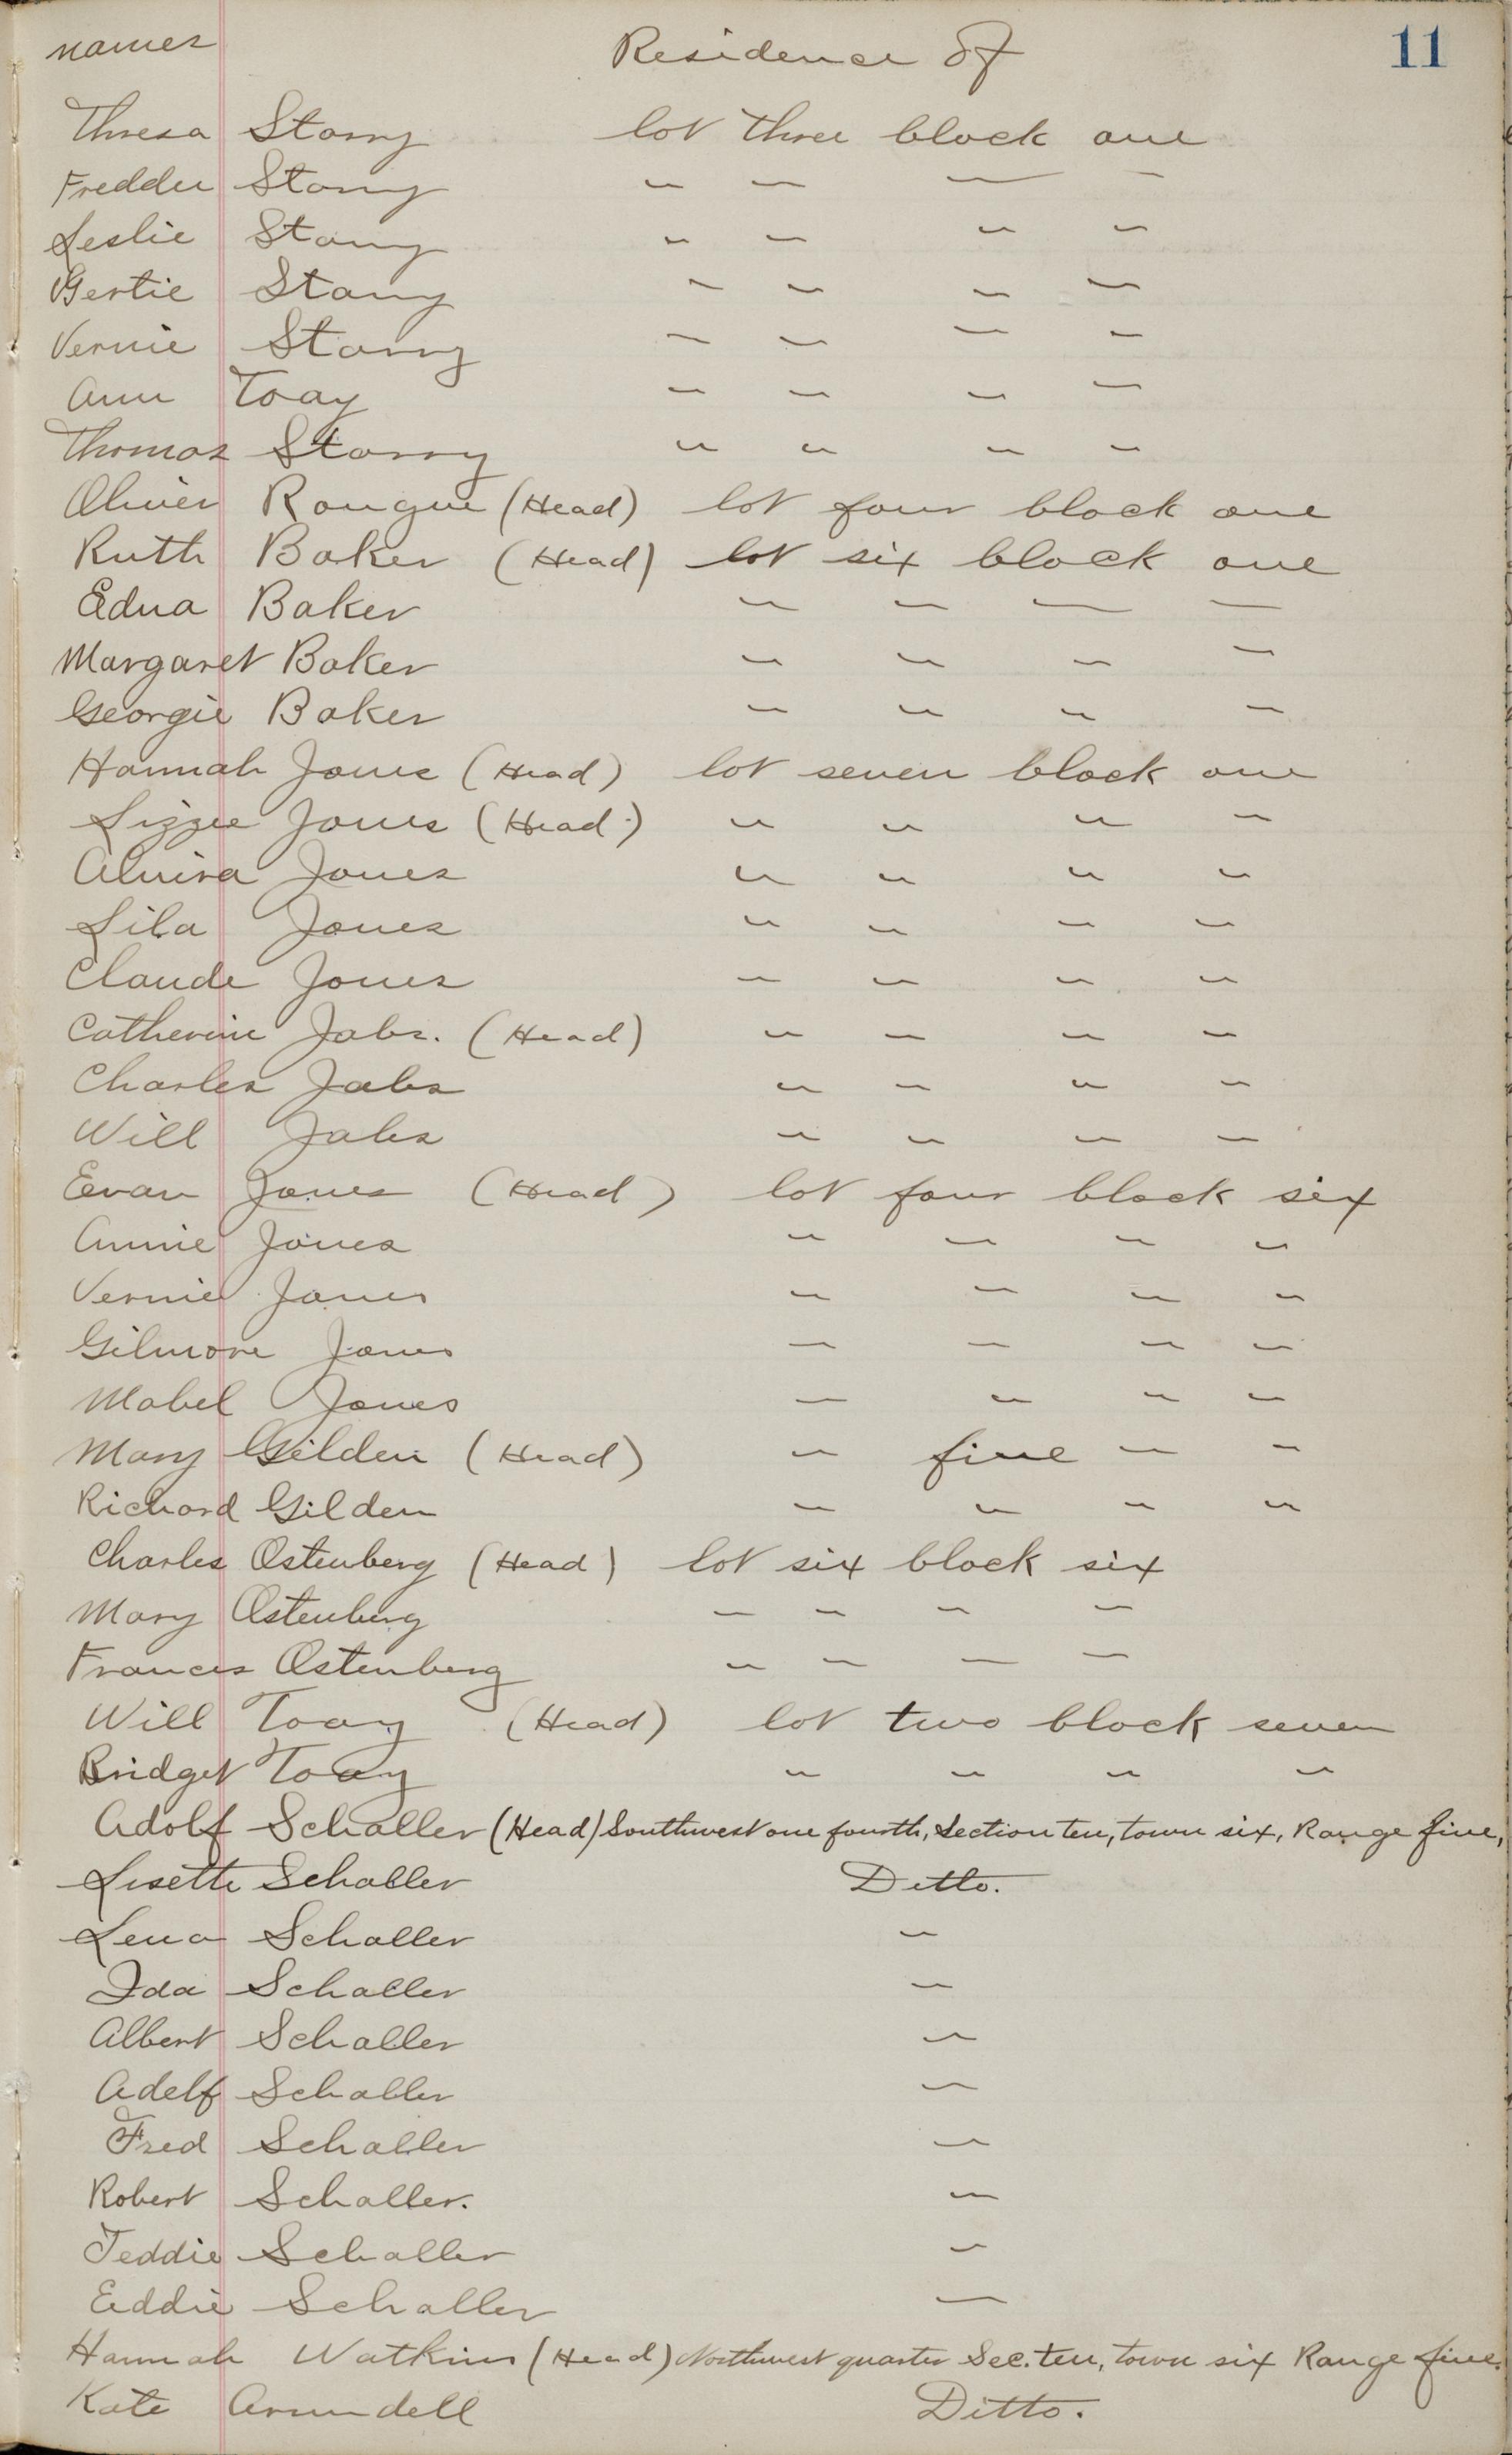 names Residence of 11
Thresa Starry lot three block one
Freddie Starry " " " "
Leslie Starry " " " "
Bertie Starry " " " "
Vernie Starry " " " "
Ann Toay " " " "
Thomas Starry " " " "
Oliver Rongue (Head) lot four block one
Ruth Baker (Head) lot six block one
Edna Baker " " " "
Margaret Baker " " " "
Georgie Baker " " " "
Hannah Jones (Head) lot seven block one
Lizzie Jones (Head) " " " "
Alvira Jones " " " "
Lila Jones " " " "
Claude Jones " " " "
Catherine Jabs. (Head) " " " "
Charles Jabs " " " "
Will Jabs " " " "
Evan Jones (Head) lot four block six
Annie Jones " " " "
Vernie Jones " " " "
Gilmore Jones " " " "
Mabel Jones " " " "
Mary Gilden (Head) " five " "
Richard Gilden " " " "
Charles Ostenberg (Head) lot six block six
Mary Ostenberg " " " "
Frances Ostenberg " " " "
Will Toay (Head) lot two block seven
Bridget Toay " " " "
Adolf Schaller (Head) Southwest one fourth, Section ten, town six, Range five,
Lisette Schaller Ditto.
Lena Schaller "
Ida Schaller "
Albert Schaller "
Adelf Schaller "
Fred Schaller "
Robert Schaller. "
Teddie Schaller "
Eddie Schaller "
Hannah Watkins (Head) Northwest quarter Sec. ten, town six Range five.
Kate Arundell Ditto.